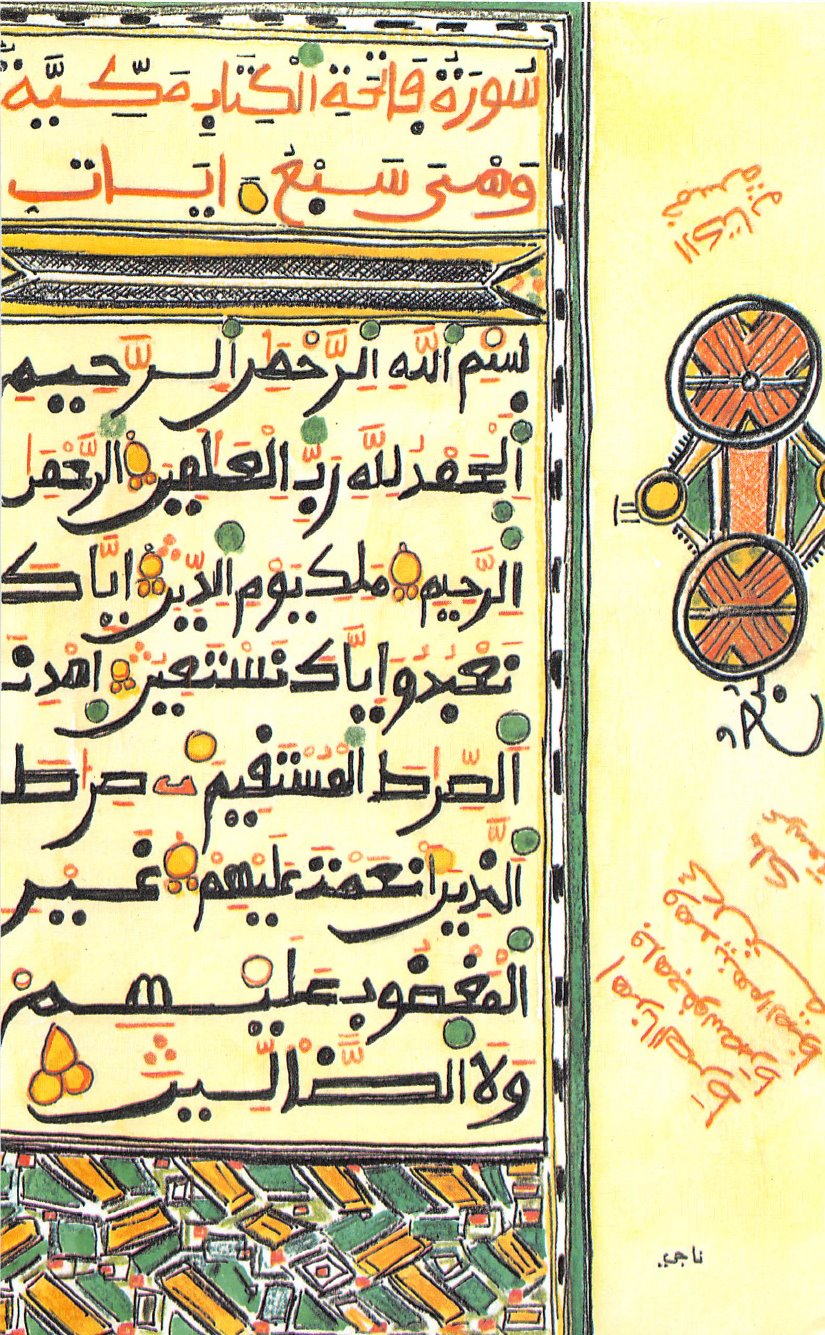 سُورَةُ فَاتِحَةِ الْكِتَابِ مَكِّيَّة
وَهْىَ سَبْعُ ايَات
بِسْمِ اللَّهِ الرَّحْمَٰنِ الرَّحِيمِ
الْحَمْدُ لِلَّهِ رَبِّ الْعَٰلَمِينَ الرَّحْمَٰنِ
الرَّحِيمِ مَلِكِ يَوْمِ الدِّينِ إِيَّاكَ
نَعْبُدُ وَإِيَّاكَ نَسْتَعِينُ اهْدِنَا
الصِّرَٰطَ الْمُسْتَقِيمَ صِرَٰطَ
الَّذِينَ أَنْعَمْتَ عَلَيْهِمْ غَيْرِ
الْمَغْضُوبِ عَلَيْهِمْ
وَلَا الضَّالِّينَ
الكتاب
ناجي